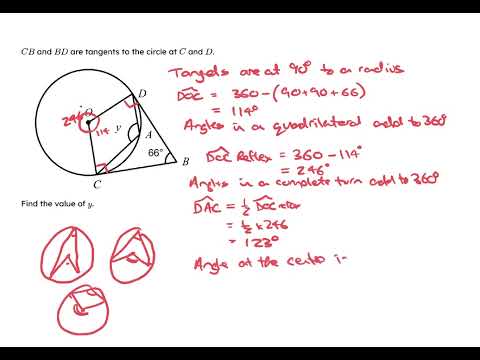 CB and BD are tangents to the circle at C and D.
Tangets are at 90° to a radius
DOC = 360 - (90+90+66)
= 114°
Angles in a quadrilateral add to 360°
DOC Reflex = 360 - 114°
= 246°
Angles in a complete turn add to 360°
DAC = 1/2 DOC
= 1/2 x 246
= 123°
Angle at the centre i
D
O
246
114
y
A
66°
B
C
Find the value of y.